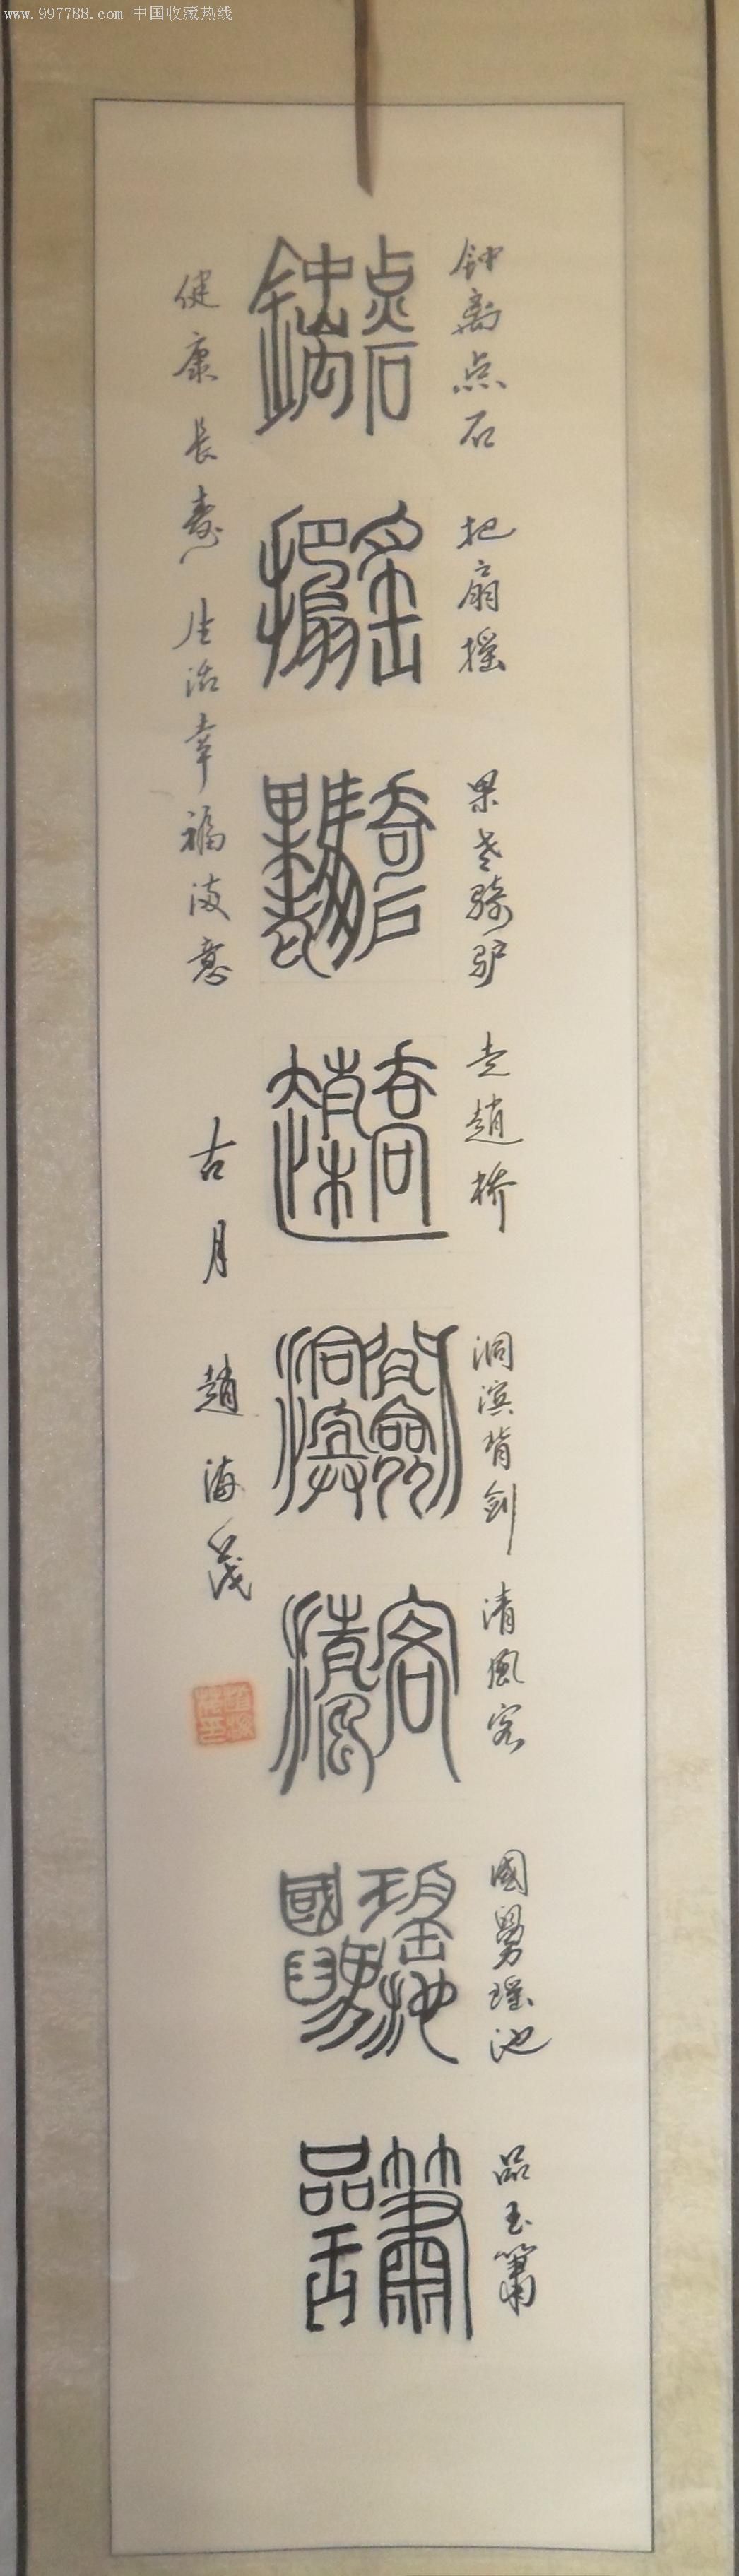 www.997788.com 中国收藏热线
钟离点石 把扇摇 果老骑驴 走趙桥 洞滨背剑 清风客 國舅瑶池 品玉箫
健康长寿 生活幸福满意 古月 趙海茂